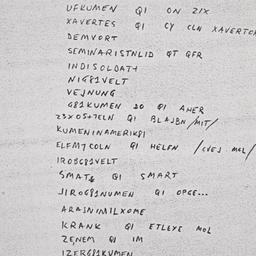 UFKUMEN QI ON ZIX
XAVERTES QI CY CLH XAVERTOR
DEMVORT
SEMINARISTNLID QT GFR
INDISOLDAT4
NIG81VELT
VEJNUNG
G81KUMEN 20 QI AHER
23XOS+7ELN QI BLAJBN/MIT/
KUMENINAMERIK81
ELFMYCOLN QI HELFN /CVEJ MAL/
IROSG81VELT
SMAT& QI SMART
JIROG81NUMEN QI OPGE...
ARAJNIMILXOME
KRANK QI ETLEYE MOL
ZEJNEM QI IM
IZERG81KUMEN